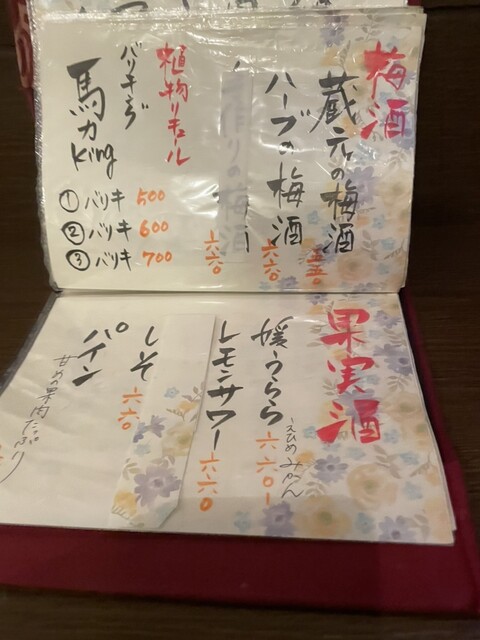 梅酒
蔵元の梅酒
五五〇
ハーブの梅酒
六六〇
手作りの梅酒
六六〇
植物リキュール
バリキング
馬力King
① バリキ 500
② バリキ 600
③ バリキ 700
果実酒
媛うらら 六六〇
えひめみかん
レモンサワー 六六〇
しそ 六六〇
パイン
甘めの果肉たっぷり